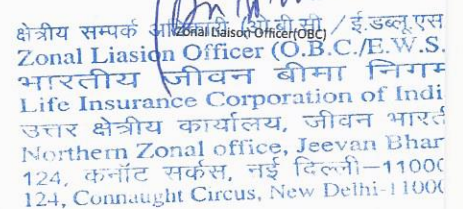 क्षेत्रीय सम्पर्क अधिकारी (ओ.बी.सी / ई.डब्लू.एस
Zonal Liaison Officer(OBC)
Zonal Liasion Officer (O.B.C./E.W.S.
भारतीय जीवन बीमा निगम
Life Insurance Corporation of Indi
उत्तर क्षेत्रीय कार्यालय, जीवन भारत
Northern Zonal office, Jeevan Bhar
124, कनॉट सर्कस, नई दिल्ली-11000
124, Connaught Circus, New Delhi-11000